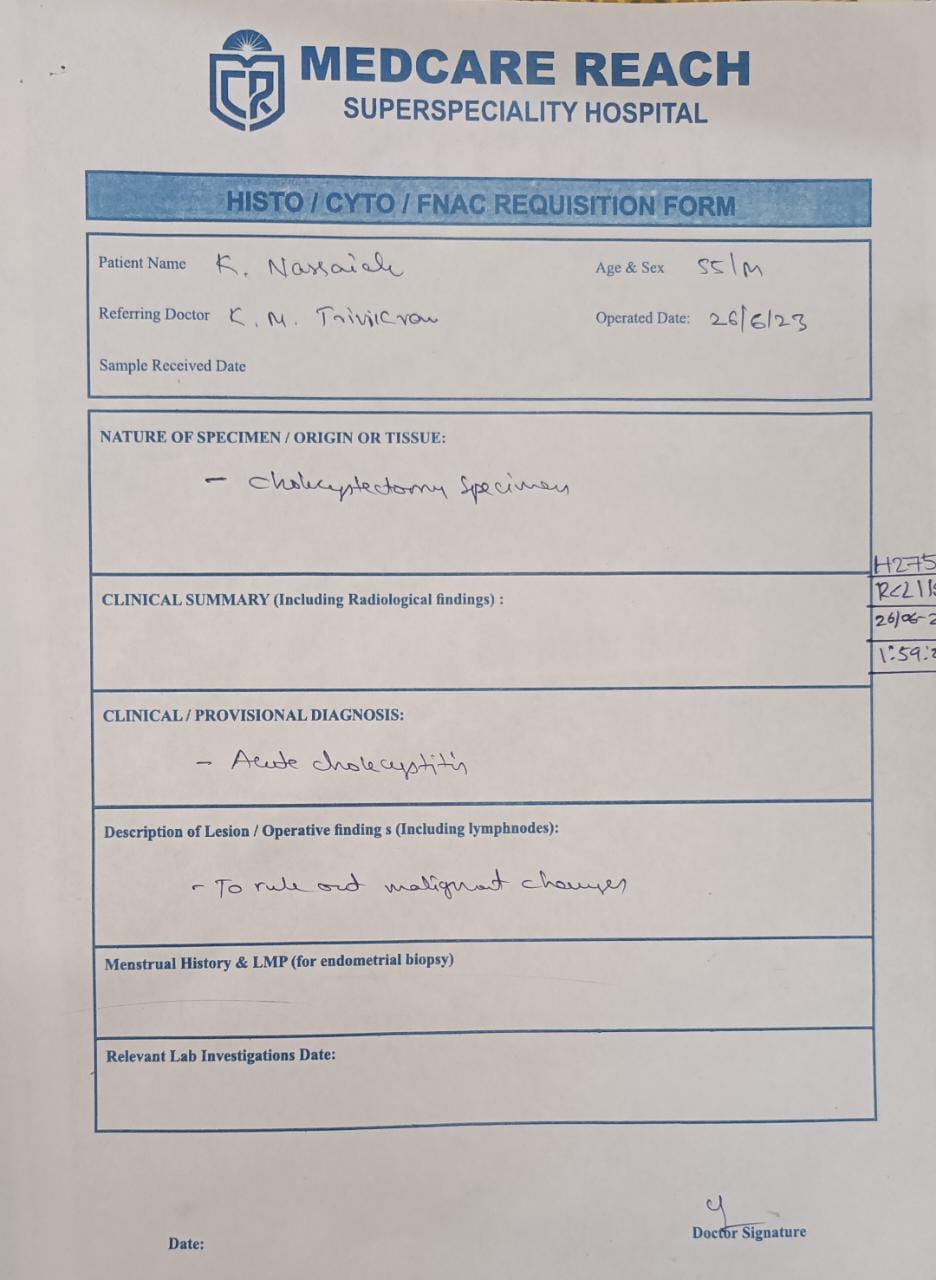 MEDCARE REACH
SUPERSPECIALITY HOSPITAL
HISTO / CYTO / FNAC REQUISITION FORM
Patient Name K. Narsaiah Age & Sex 55/M
Referring Doctor K. M. Trivikram Operated Date: 26/6/23
Sample Received Date
NATURE OF SPECIMEN / ORIGIN OR TISSUE:
- Cholecystectomy Specimen
H275
CLINICAL SUMMARY (Including Radiological findings) :
26/06-2
1:59:2
CLINICAL / PROVISIONAL DIAGNOSIS:
- Acute cholecystitis
Description of Lesion / Operative finding s (Including lymphnodes):
- To rule out malignant changes
Menstrual History & LMP (for endometrial biopsy)
Relevant Lab Investigations Date:
Doctor Signature
Date: